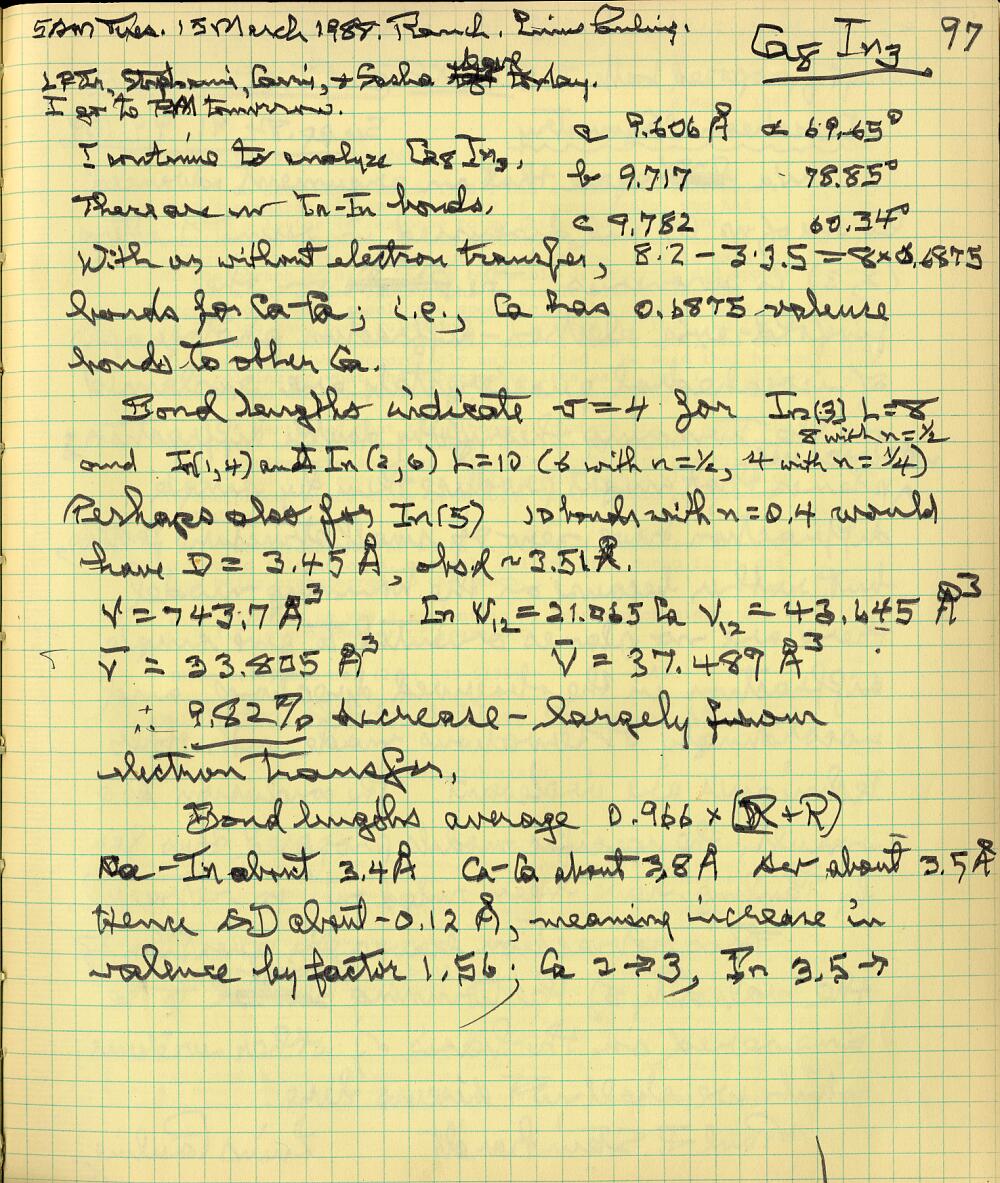 97
Ca8 In3
5 AM Tues. 15 March 1988. Ranch. Linus Pauling.
LP Jr, Stephanie, Carrie, + Sasha leave today.
I go to PM tomorrow.
a 9.606 Å α 69.65°
I continue to analyze Ca8 In3.
b 9.717 78.85°
There are no In-In bonds.
c 9.782 60.34°
With or without electron transfer, 8·2 – 3·3.5 = 8×0.6875
bonds for Ca-Ca; i.e., Ca has 0.6875 valence
bonds to other Ca.
Bond lengths indicate v = 4 for In(3) L=8
8 with n=½
and In(1,4) and In(2,6) L=10 (6 with n=½, 4 with n=¼)
Perhaps also for In(5) 10 bonds with n=0.4 would
have D = 3.45 Å, obsd ~ 3.51 Å.
V = 743.7 Å3 In V12 = 21.065 Ca V12 = 43.645 Å3
V̄ = 33.805 Å3 V̄ = 37.489 Å3
∴ 9.82% decrease – largely from
electron transfer.
Bond lengths average 0.966 × (R+R)
Ca-In about 3.4 Å Ca-Ca about 3.8 Å av about 3.5 Å
Hence ΔD about -0.12 Å, meaning increase in
valence by factor 1.56; Ca 2→3, In 3.5→